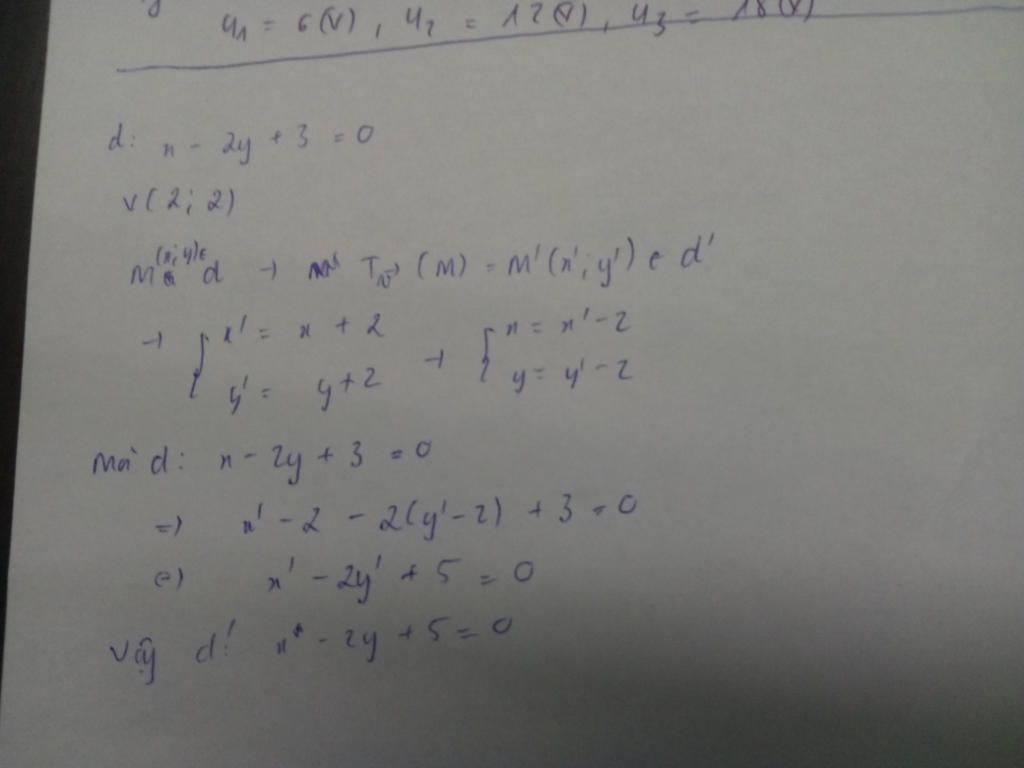 U₁ = 6 (V), U₂ = 12 (V), U₃ = 18 (V)
d: x - 2y + 3 = 0
v(2; 2)
M (x; y) ∈ d → T_v→ (M) = M'(x'; y') ∈ d'
→ { x' = x + 2 → { x = x' - 2
y' = y + 2 y = y' - 2
Mà d: x - 2y + 3 = 0
=> x' - 2 - 2(y' - 2) + 3 = 0
(=) x' - 2y' + 5 = 0
Vậy d': x - 2y + 5 = 0